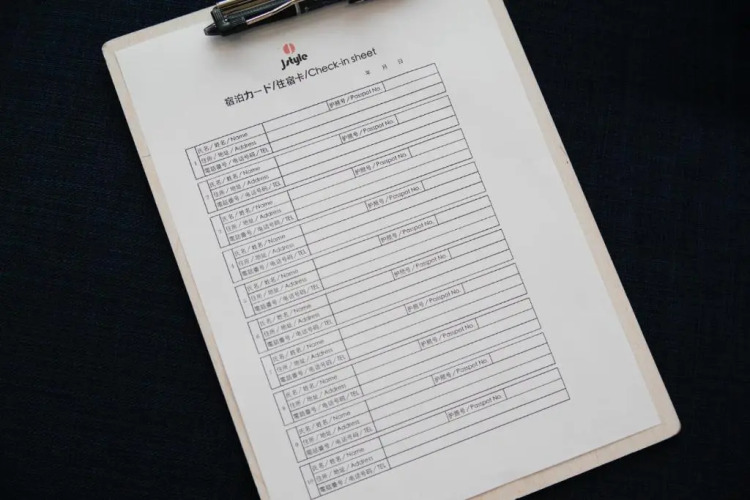 Jstyle
宿泊カード/住宿卡/Check-in sheet
年 月 日
1 氏名/姓名/Name 护照号/Passpot No.
住所/地址/Address
電話番号/电话号码/TEL
2 氏名/姓名/Name 护照号/Passpot No.
住所/地址/Address
電話番号/电话号码/TEL
3 氏名/姓名/Name 护照号/Passpot No.
住所/地址/Address
電話番号/电话号码/TEL
4 氏名/姓名/Name 护照号/Passpot No.
住所/地址/Address
電話番号/电话号码/TEL
5 氏名/姓名/Name 护照号/Passpot No.
住所/地址/Address
電話番号/电话号码/TEL
6 氏名/姓名/Name 护照号/Passpot No.
住所/地址/Address
電話番号/电话号码/TEL
7 氏名/姓名/Name 护照号/Passpot No.
住所/地址/Address
電話番号/电话号码/TEL
8 氏名/姓名/Name 护照号/Passpot No.
住所/地址/Address
電話番号/电话号码/TEL
9 氏名/姓名/Name 护照号/Passpot No.
住所/地址/Address
電話番号/电话号码/TEL
10 氏名/姓名/Name 护照号/Passpot No.
住所/地址/Address
電話番号/电话号码/TEL